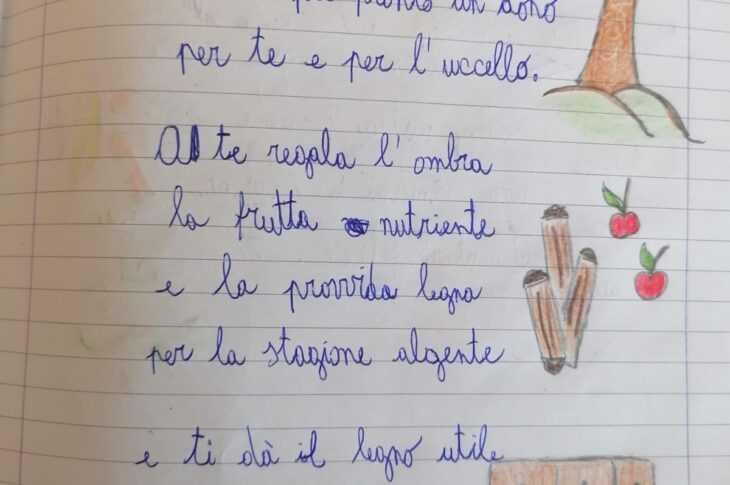 pronto un dono
per te e per l'uccello.
A te regala l'ombra
la frutta nutriente
e la provvida legna
per la stagione algente
e ti dà il legno utile